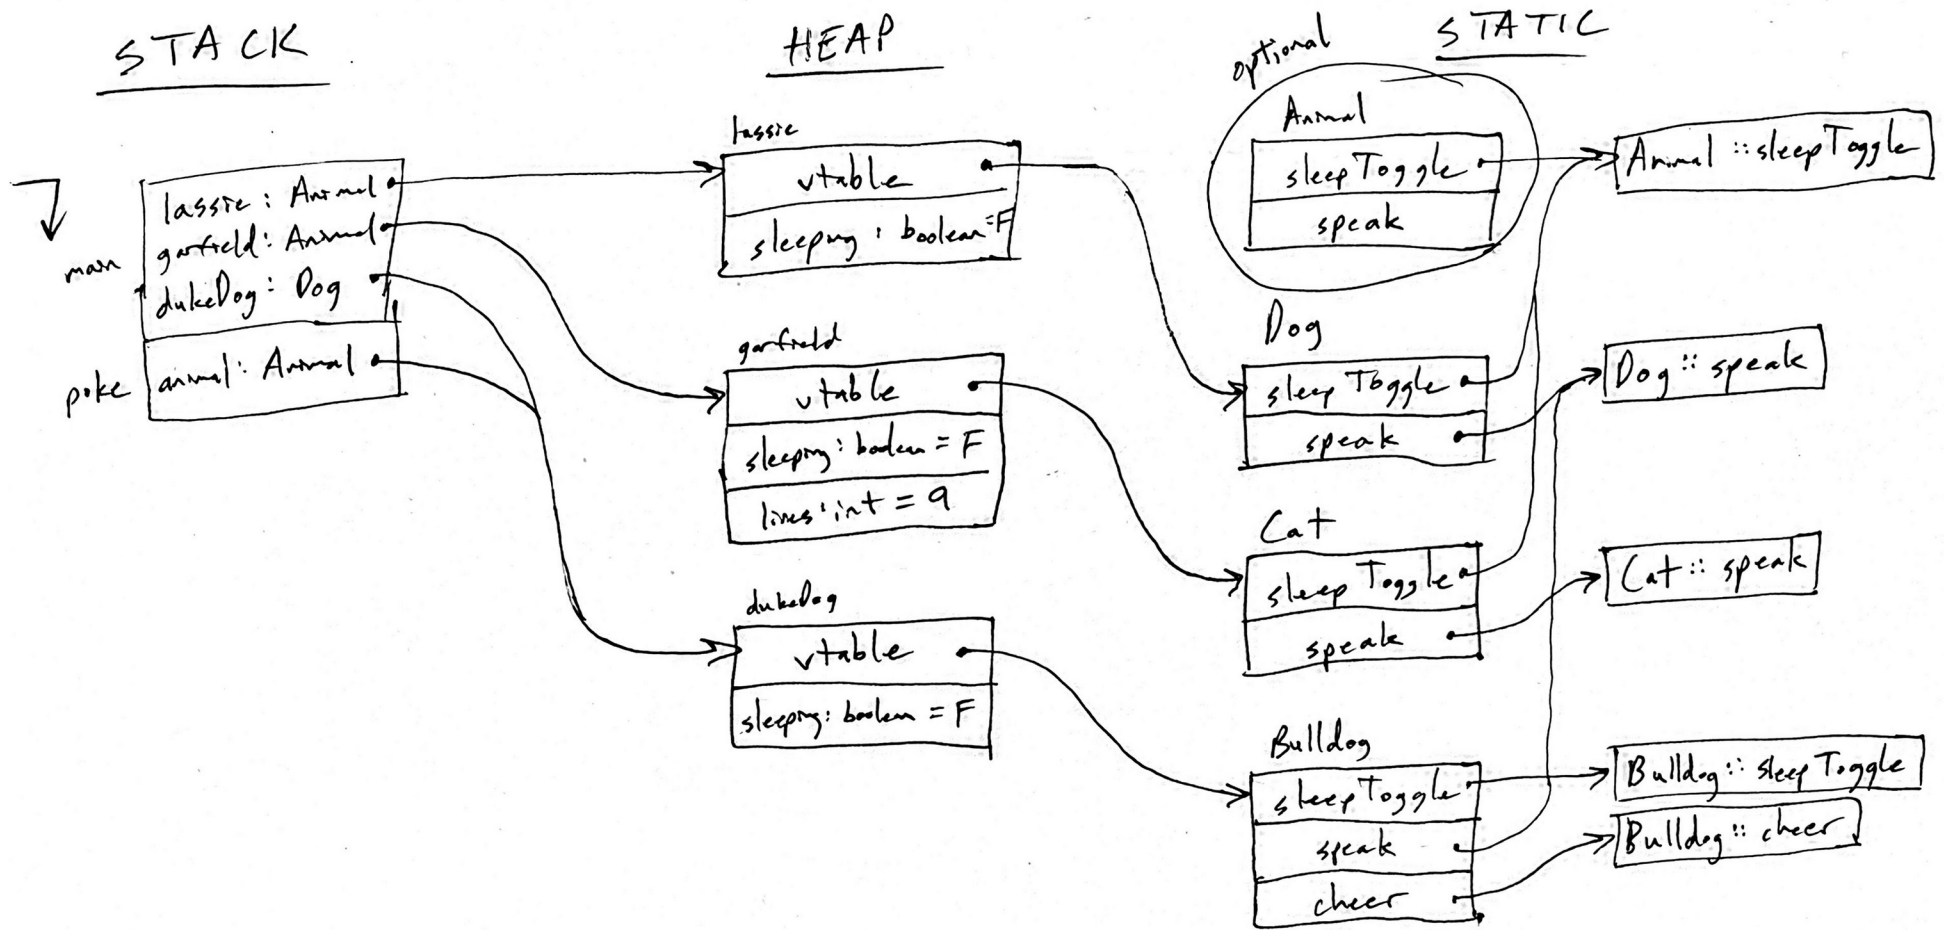 STACK
HEAP
STATIC
optional
main
lassie : Animal
garfield : Animal
dukeDog : Dog
poke
animal : Animal
lassie
vtable
sleeping : boolean = F
garfield
vtable
sleeping : boolean = F
lives : int = 9
dukeDog
vtable
sleeping : boolean = F
Animal
sleepToggle
speak
Dog
sleepToggle
speak
Cat
sleepToggle
speak
Bulldog
sleepToggle
speak
cheer
Animal :: sleepToggle
Dog :: speak
Cat :: speak
Bulldog :: sleepToggle
Bulldog :: cheer